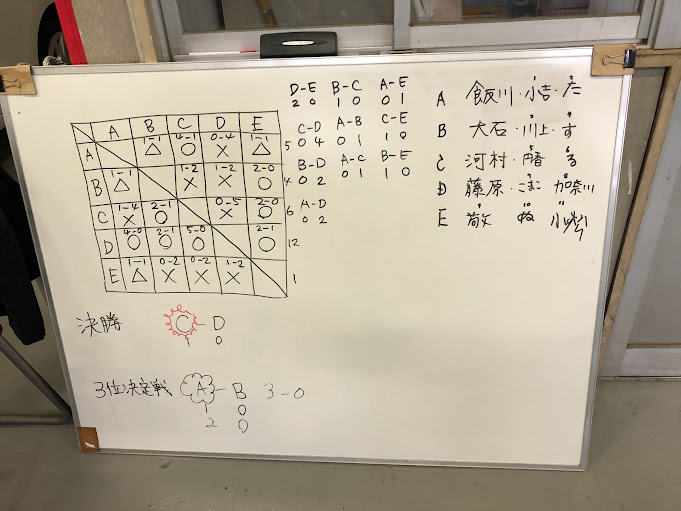 D-E B-C A-E
2 0 1 0 0 1
C-D A-B C-E
0 4 0 1 1 0
B-D A-C B-E
0 2 0 1 1 0
A-D
0 2
A B C D E
A 1-1 △ 4-1 ○ 0-4 × 1-1 △ 5
B 1-1 △ 1-2 × 1-2 × 2-0 ○ 4
C 1-4 × 2-1 ○ 0-5 × 2-0 ○ 6
D 4-0 ○ 2-1 ○ 5-0 ○ 2-1 ○ 12
E 1-1 △ 0-2 × 0-2 × 1-2 × 1
決勝 C - D
1 0
3位決定戦 A - B 3-0
1 0
2 0
A 飯川・小吉・た
B 大石・川上・す
C 河村・る
D 藤原・こまこ 加奈川
E